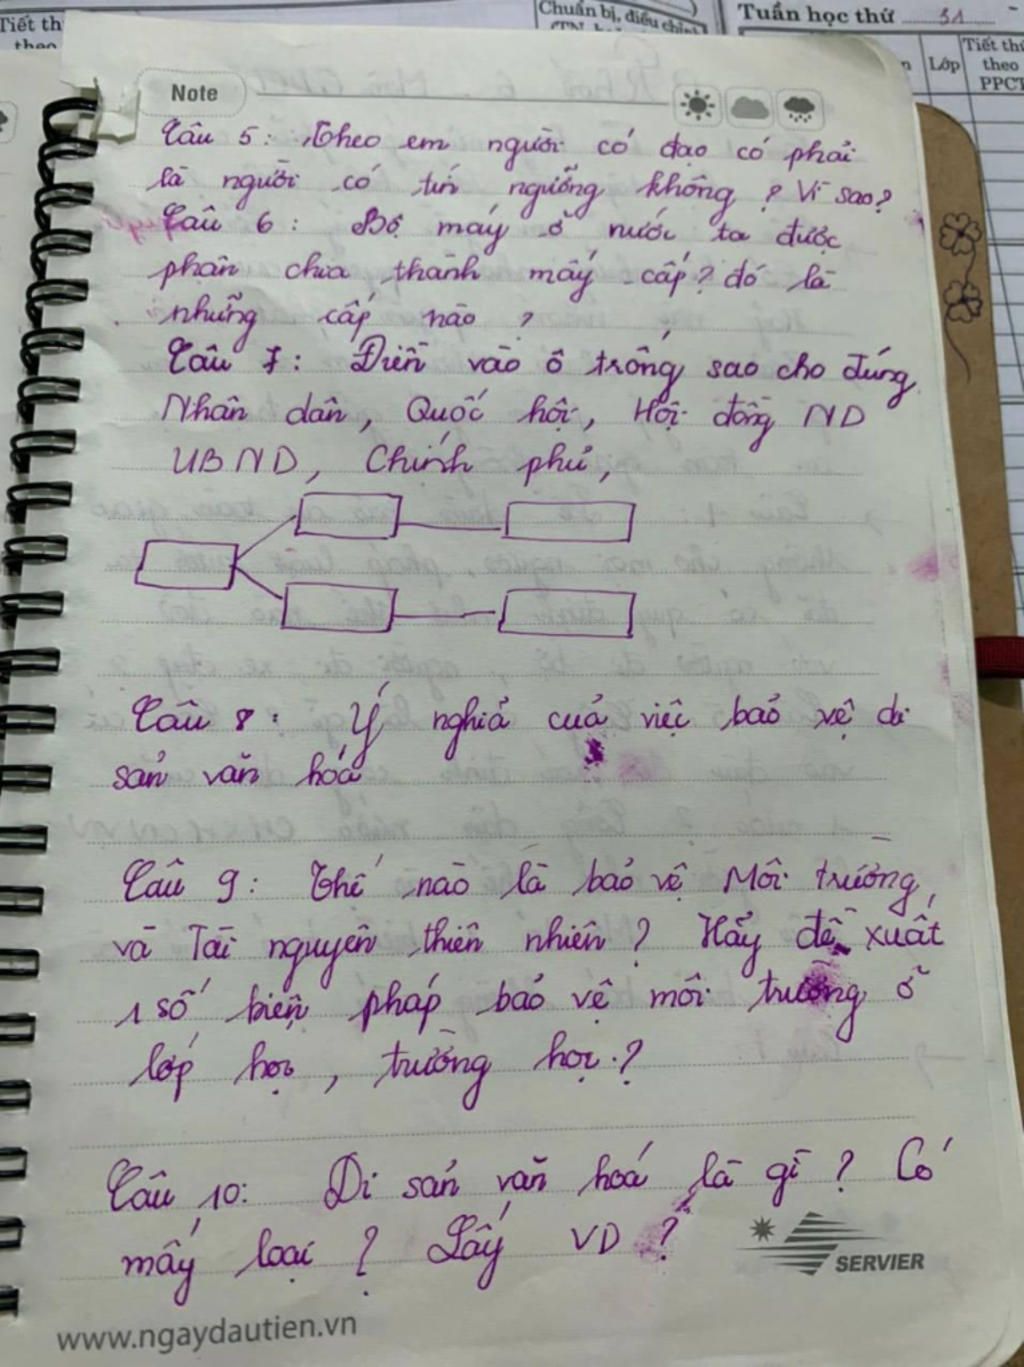 Tiết th
theo
Chuẩn bị, điều chỉnh
Tuần học thứ 31
Lớp
Tiết thứ
theo
PPCT
Note
Câu 5: Theo em người có đạo có phải
là người có tín ngưỡng không? Vì sao?
Câu 6: Bộ máy ở nước ta được
phân chia thành mấy cấp? đó là
những cấp nào?
Câu 7: Điền vào ô trống sao cho đúng
Nhân dân, Quốc hội, Hội đồng ND
UBND, Chính phủ,
Câu 8: Ý nghiã cuả việc bảo vệ di
sản văn hóa
Câu 9: Thế nào là bảo vệ Môi trường,
và Tài nguyên thiên nhiên? Hãy đề xuất
1 số biện pháp bảo vệ môi trường ở
lớp học, trường học?
Câu 10: Di sản văn hoá là gì? Có
mấy loại? Lấy VD?
SERVIER
www.ngaydautien.vn